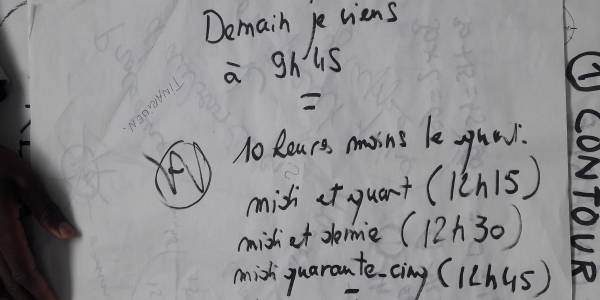 Demain je viens
à 9h45
=
10 heures moins le quart.
midi et quart (12h15)
midi et demie (12h30)
midi quarante-cinq (12h45)
1 CONTOUR